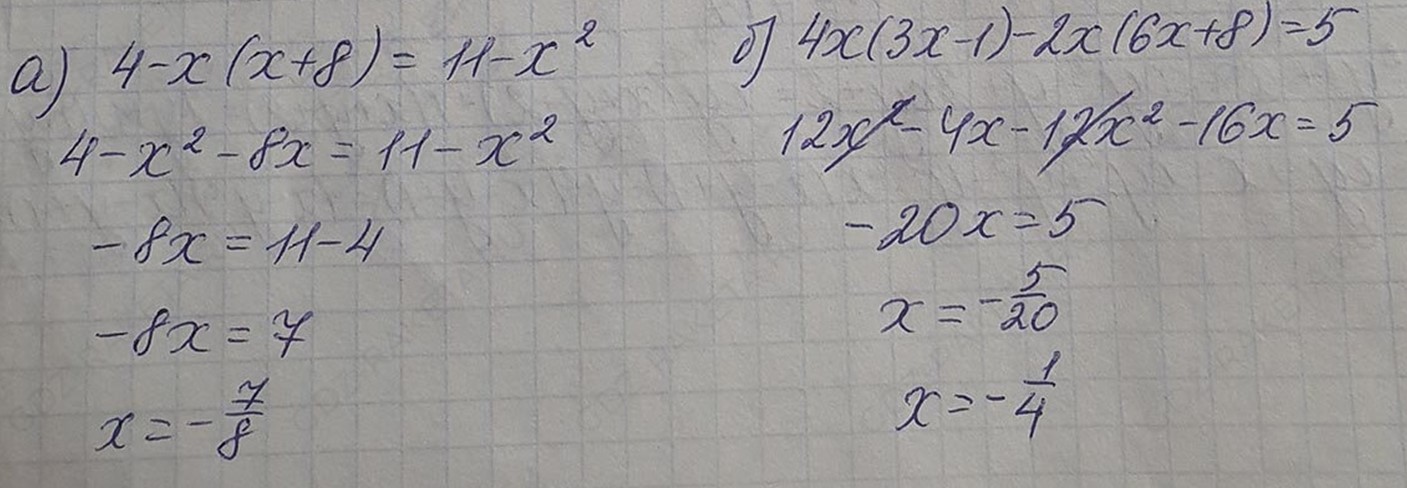 а) 4-x(x+8)=11-x²
4-x²-8x=11-x²
-8x=11-4
-8x=7
x=-7/8
б) 4x(3x-1)-2x(6x+8)=5
12x²-4x-12x²-16x=5
-20x=5
x=-5/20
x=-1/4